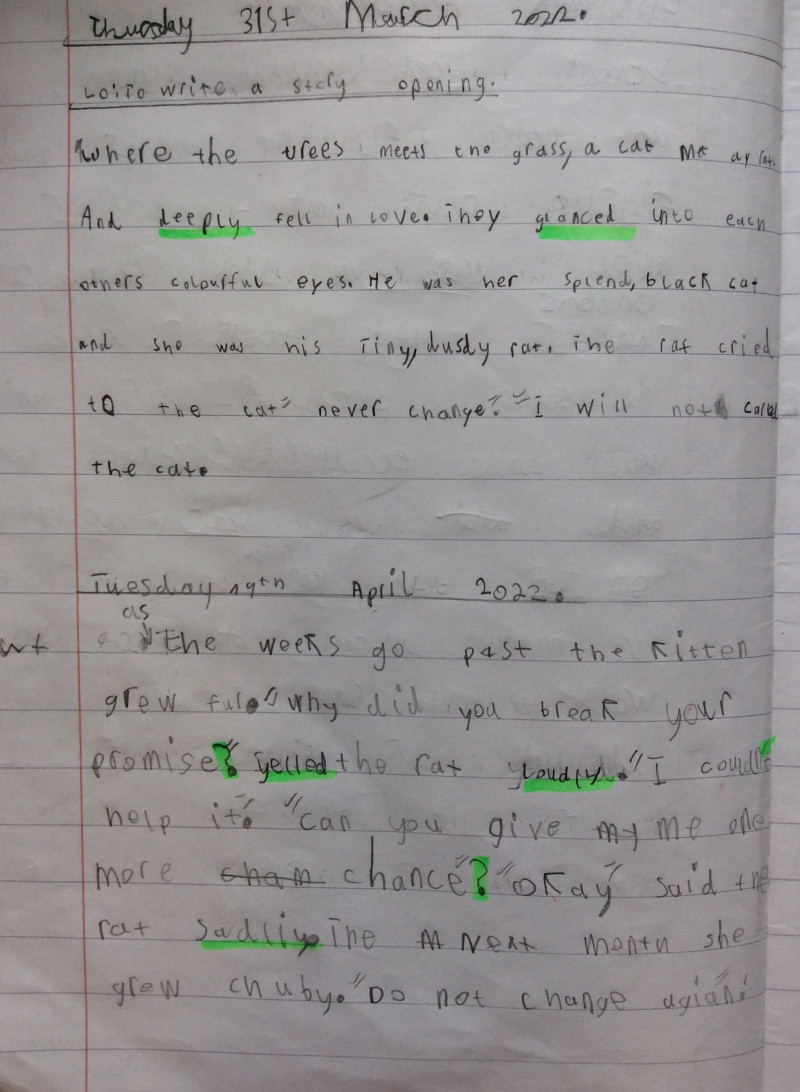 Thusday 31st March 2022.
LO: To write a story opening.
Where the trees meets the grass, a cat met a rat.
And deeply fell in love. They glanced into each
others colourful eyes. He was her splend, black cat
and she was his Tiny, dusdy rat. The rat cried
to the cat" never change". "I will not
the cat.
Tuesday 19th April 2022.
as
the weeks go past the kitten
grew ful. "why did you break your
promise?" yelled the rat loudly. "I could't
help it". "can you give my me one
more cham chance"? "Okay" said the
rat sadliy. The M Next month she
grew chuby. "Do not change agian"